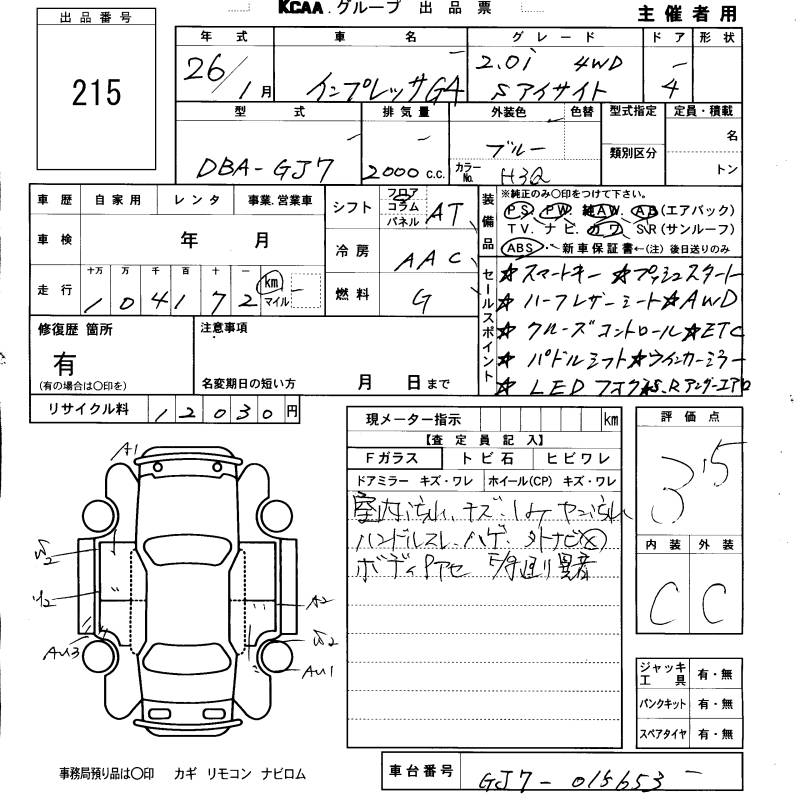 KCAA グループ 出品票
主催者用
出品番号
215
年式 車名 グレード ドア 形状
26/1月 インプレッサG4 2.0i 4WD
Sアイサイト 4
型式 排気量 外装色 色替 型式指定 定員・積載
DBA-GJ7 2000 c.c. ブルー 名
カラーNo. H3Q 類別区分 トン
車歴 自家用 レンタ 事業.営業車
車検 年 月
走行 十万 万 千 百 十 一
104172 km マイル
シフト フロア コラム パネル AT
冷房 AAC
燃料 G
装備品 ※純正のみ〇印をつけて下さい。
PS. PW. 純AW. AB(エアバック)
TV. ナビ. カワ. SR(サンルーフ)
ABS 新車保証書←(注)後日送りのみ
セールスポイント
☆スマートキー ☆プッシュスタート
☆ハーフレザーシート☆AWD
☆クルーズコントロール☆ETC
☆パドルシフト☆ウインカーミラー
☆LEDフォグ☆S.Rアンダーエアロ
修復歴 箇所
有
(有の場合は〇印を)
注意事項
名変期日の短い方 月 日まで
リサイクル料 12030円
現メーター指示 km
【査定員記入】
Fガラス トビ石 ヒビワレ
ドアミラー キズ・ワレ ホイール(CP) キズ・ワレ
室内汚れ、キズ・コゲ ヤニ汚れ
ハンドルスレ、ハゲ、外ナビ×
ボディPアセ 異音
評価点
3.5
内装 外装
C C
A1
A2
AU3
AU1
ジャッキ工具 有・無
パンクキット 有・無
スペアタイヤ 有・無
事務局預り品は〇印 カギ リモコン ナビロム
車台番号 GJ7-015653